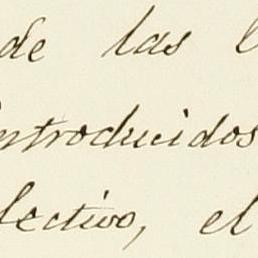 de las
introducidos
lectivo, el